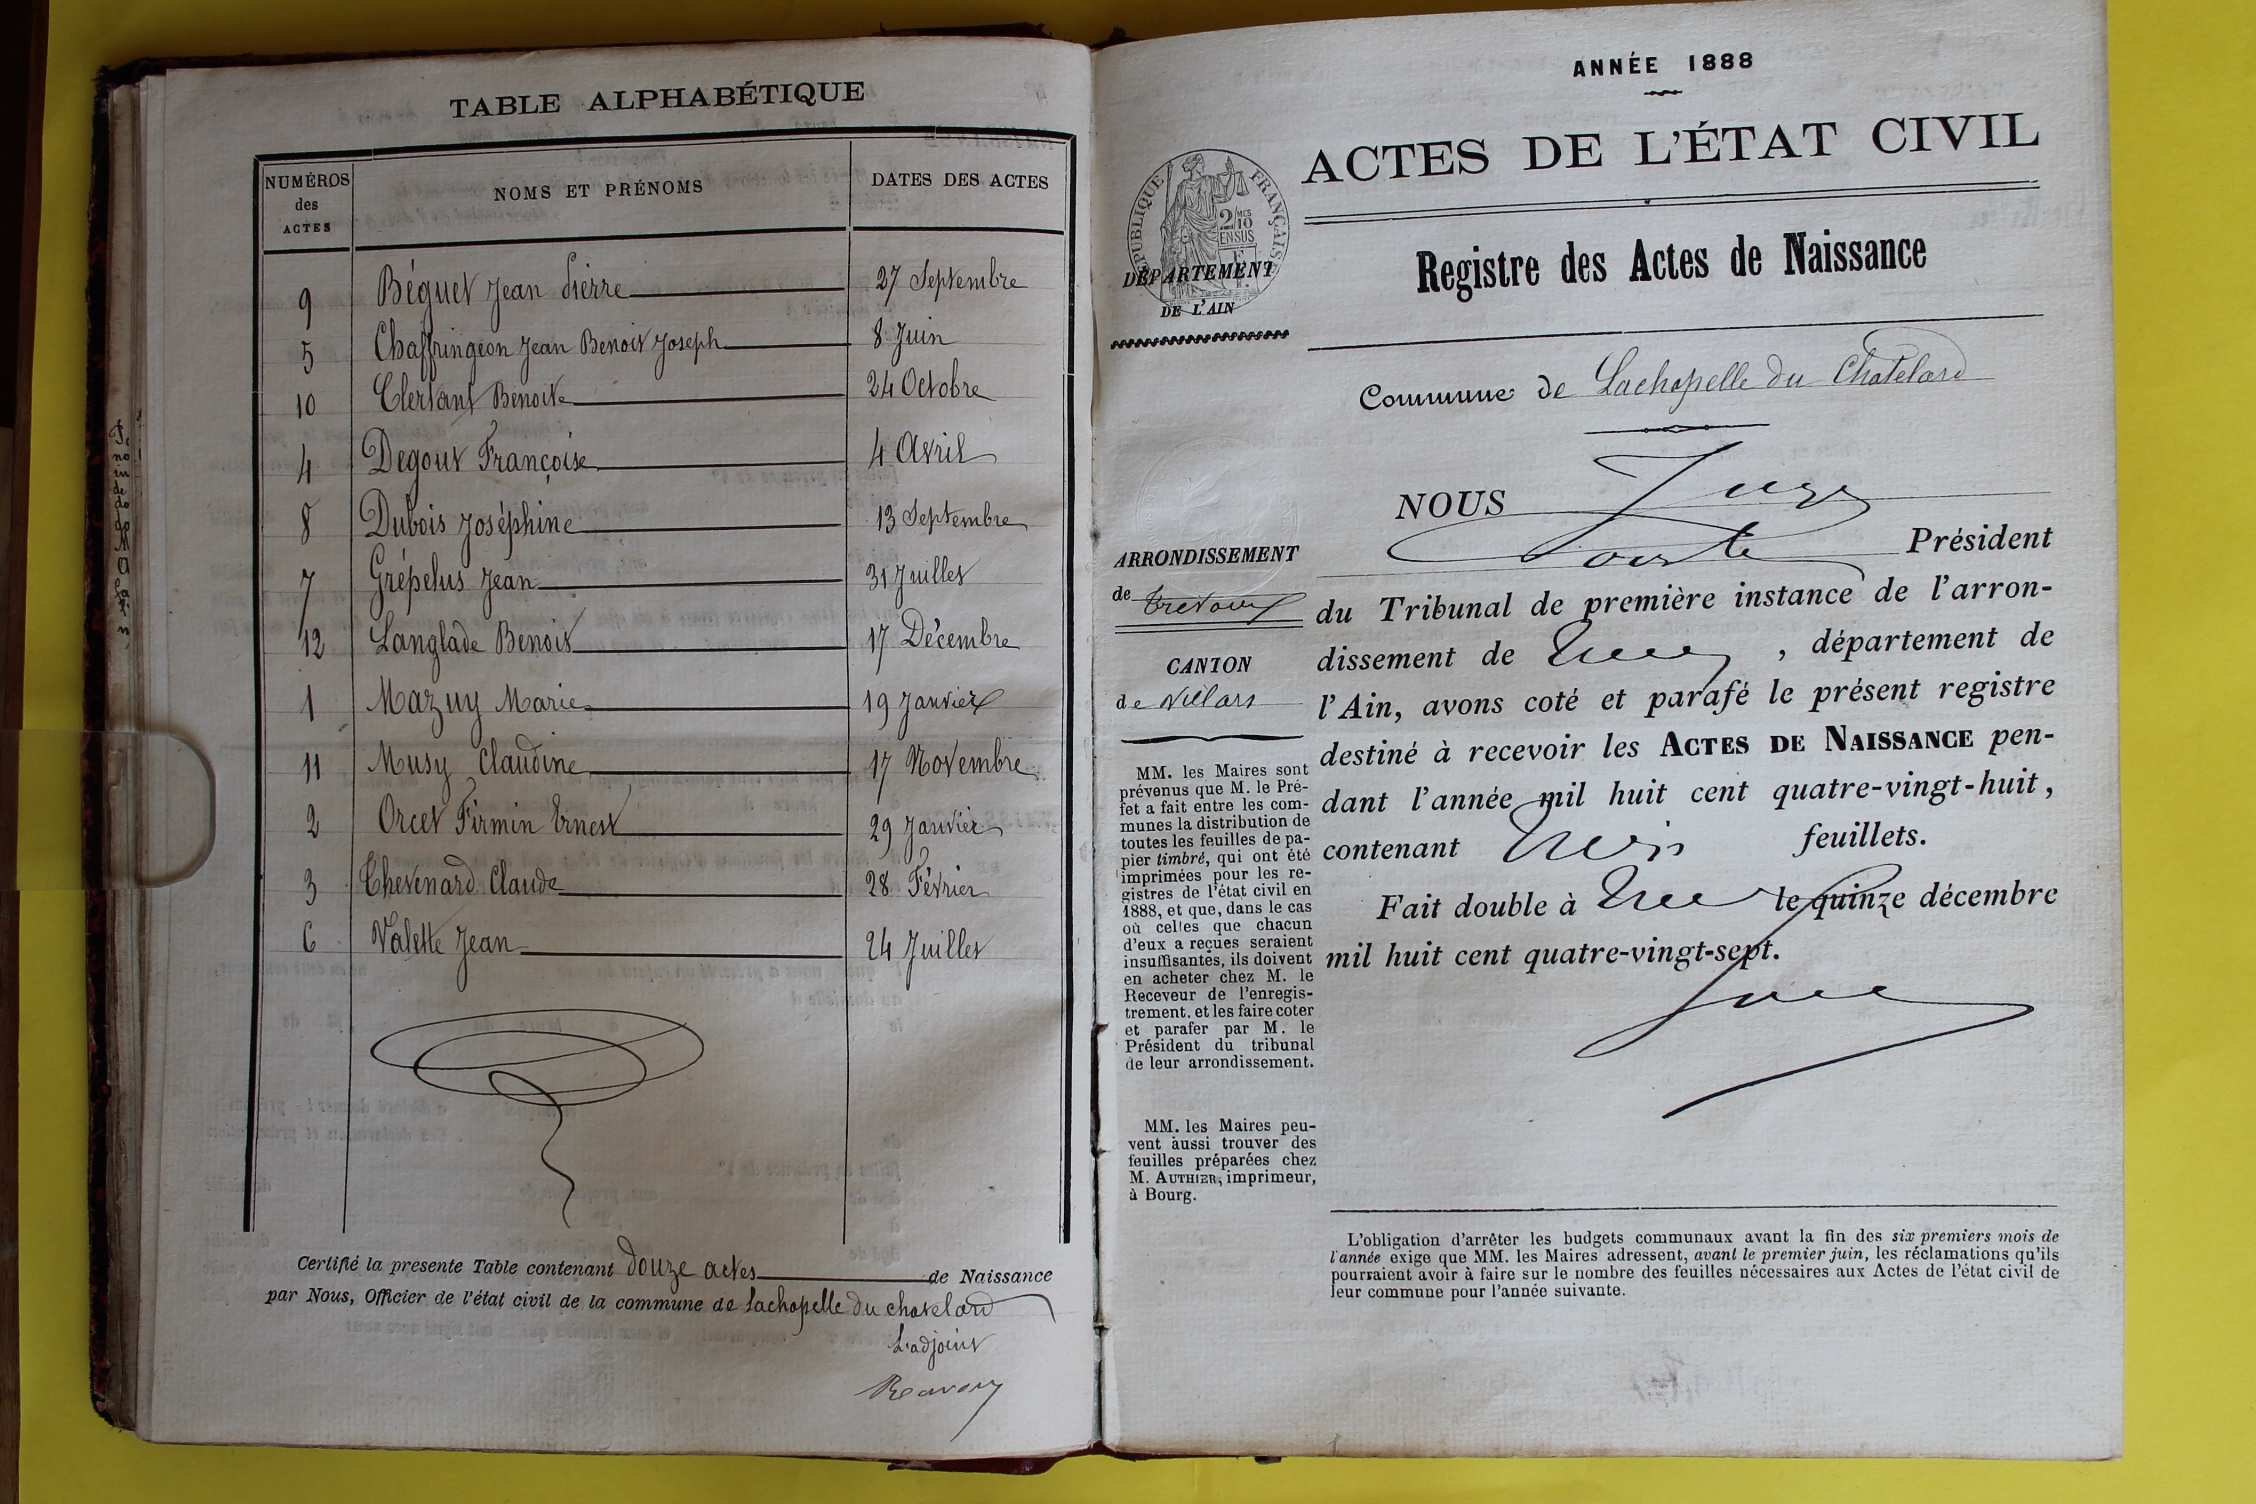 TABLE ALPHABÉTIQUE
NUMÉROS des ACTES NOMS ET PRÉNOMS DATES DES ACTES
9 Béguet Jean Pierre 27 Septembre
5 Chaffringeon Jean Benoit Joseph 8 Juin
10 Clertant Benoite 24 Octobre
4 Degout Françoise 4 Avril
8 Dubois Joséphine 13 Septembre
7 Grépelus Jean 31 Juillet
12 Langlade Benoit 17 Décembre
1 Mazuy Marie 19 Janvier
11 Musy Claudine 17 Novembre
2 Orcet Firmin Ernest 29 Janvier
3 Chevenard Claude 28 Février
6 Valette Jean 24 Juillet
Certifié la présente Table contenant douze actes de Naissance
par Nous, Officier de l'état civil de la commune de Lachapelle du chatelard
L'adjoint
ANNÉE 1888
ACTES DE L'ÉTAT CIVIL
RÉPUBLIQUE FRANÇAISE
2/10 MES
EN SUS
DÉPARTEMENT
DE L'AIN
Registre des Actes de Naissance
Commune de Lachapelle du Chatelard
ARRONDISSEMENT
de Trévoux
CANTON
de Villars
MM. les Maires sont
prévenus que M. le Pré-
fet a fait entre les com-
munes la distribution de
toutes les feuilles de pa-
pier timbré, qui ont été
imprimées pour les re-
gistres de l'état civil en
1888, et que, dans le cas
où celles que chacun
d'eux a reçues seraient
insuffisantes, ils doivent
en acheter chez M. le
Receveur de l'enregis-
trement, et les faire coter
et parafer par M. le
Président du tribunal
de leur arrondissement.
MM. les Maires peu-
vent aussi trouver des
feuilles préparées chez
M. AUTHIER, imprimeur,
à Bourg.
NOUS
Président
du Tribunal de première instance de l'arron-
dissement de , département de
l'Ain, avons coté et parafé le présent registre
destiné à recevoir les ACTES DE NAISSANCE pen-
dant l'année mil huit cent quatre-vingt-huit,
contenant trois feuillets.
Fait double à le quinze décembre
mil huit cent quatre-vingt-sept.
L'obligation d'arrêter les budgets communaux avant la fin des six premiers mois de
l'année exige que MM. les Maires adressent, avant le premier juin, les réclamations qu'ils
pourraient avoir à faire sur le nombre des feuilles nécessaires aux Actes de l'état civil de
leur commune pour l'année suivante.